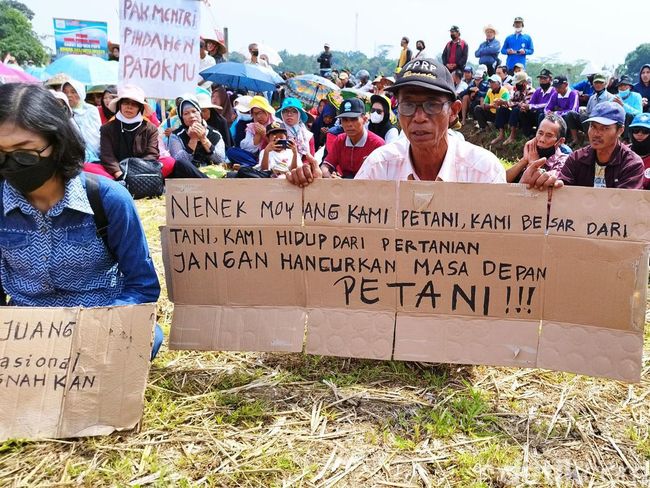 PAK MENTRI
PINDAHEN
PATOKMU
NENEK MOYANG KAMI PETANI, KAMI BESAR DARI
TANI, KAMI HIDUP DARI PERTANIAN
JANGAN HANCURKAN MASA DEPAN
PETANI!!!
JUANG
asional
GNAHKAN